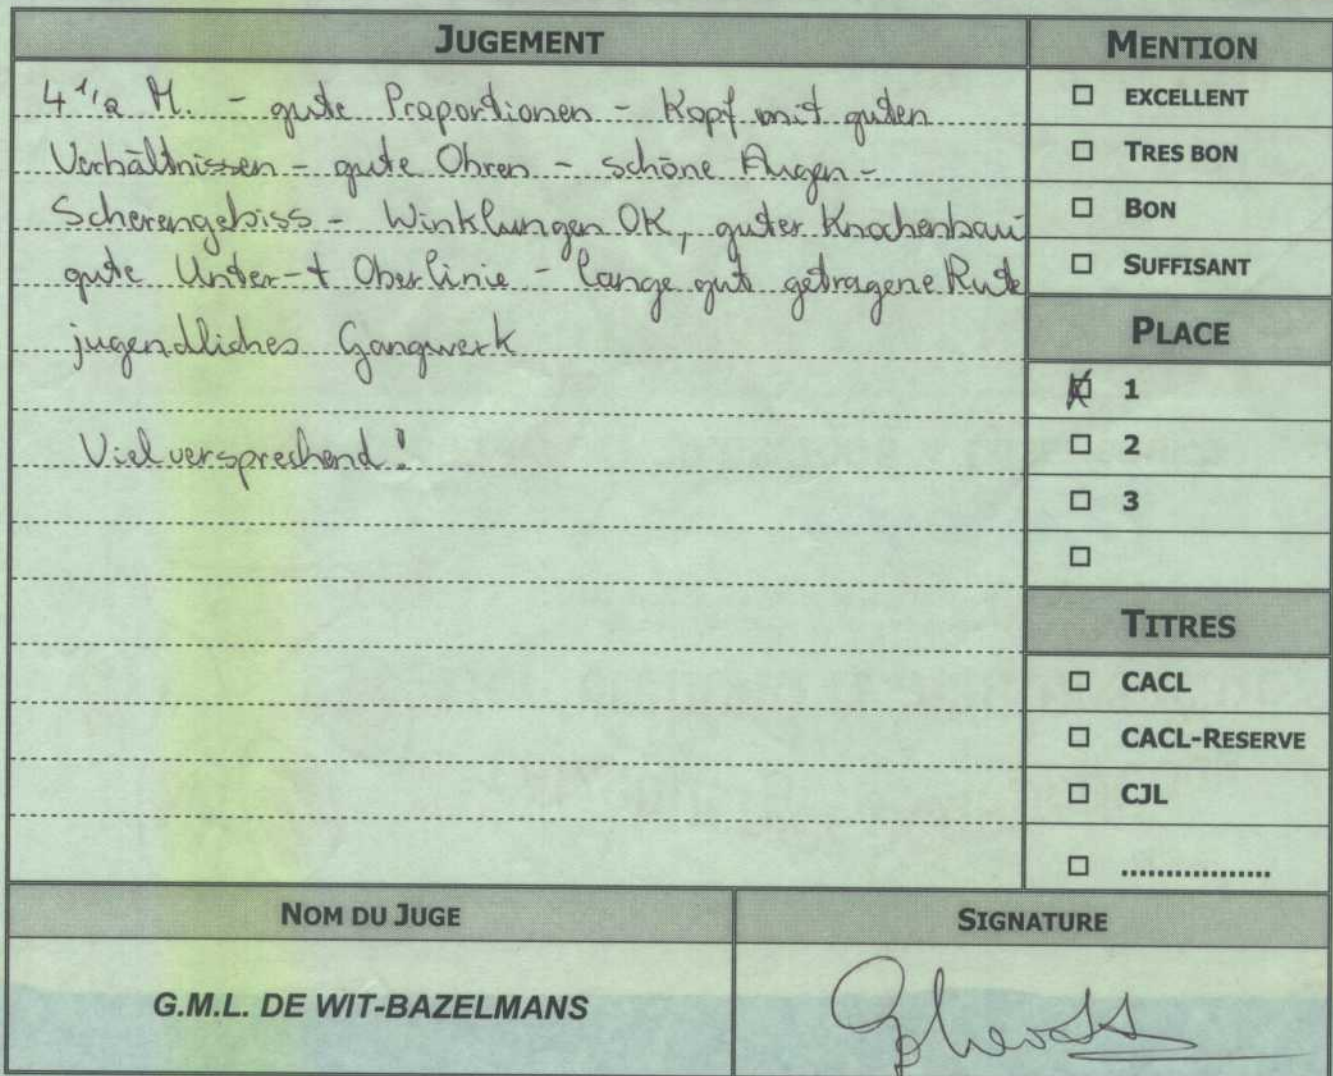 JUGEMENT
4 1/2 M. - gute Proportionen - Kopf mit guten
Verhältnissen - gute Ohren - schöne Augen -
Scherengebiss - Winklungen OK, guter Knochenbau
gute Unter- + Oberlinie - lange gut getragene Rute
jugendliches Gangwerk
Vielversprechend!
MENTION
☐ EXCELLENT
☐ TRES BON
☐ BON
☐ SUFFISANT
PLACE
☒ 1
☐ 2
☐ 3
☐
TITRES
☐ CACL
☐ CACL-RESERVE
☐ CJL
☐ ..................
NOM DU JUGE
G.M.L. DE WIT-BAZELMANS
SIGNATURE